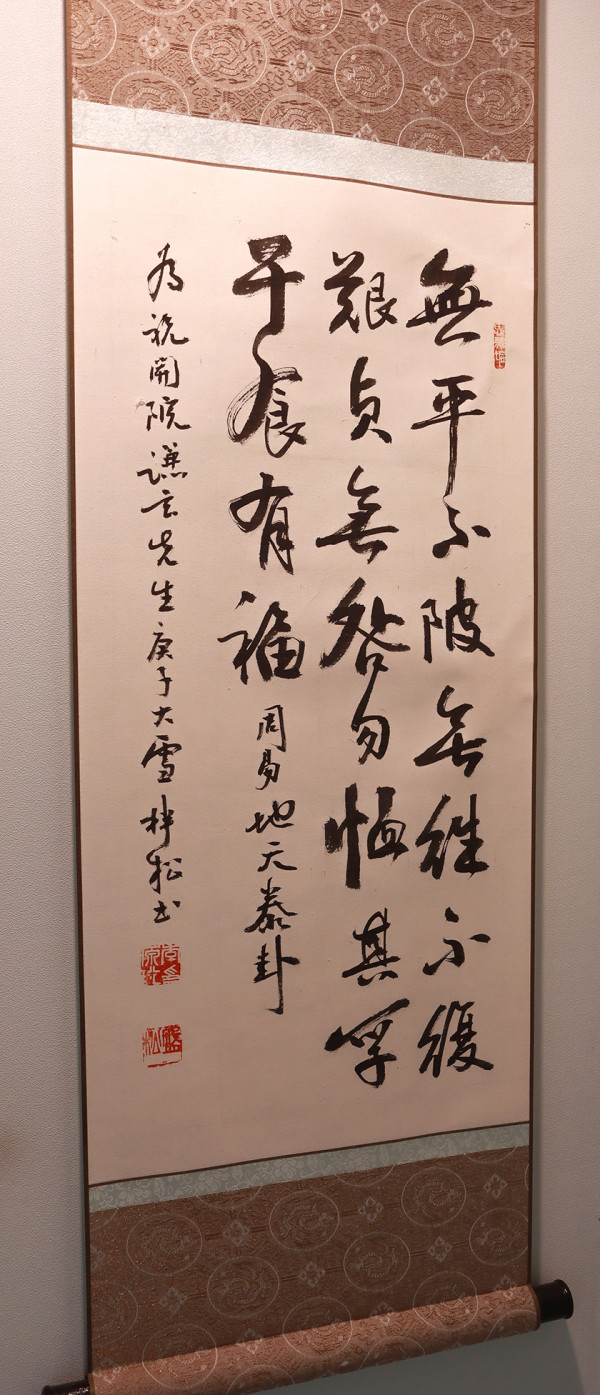 無平不陂無往不復
艱貞無咎勿恤其孚
于食有福 周易地天泰卦
為祝開院謙玄先生庚子大雪柈松書